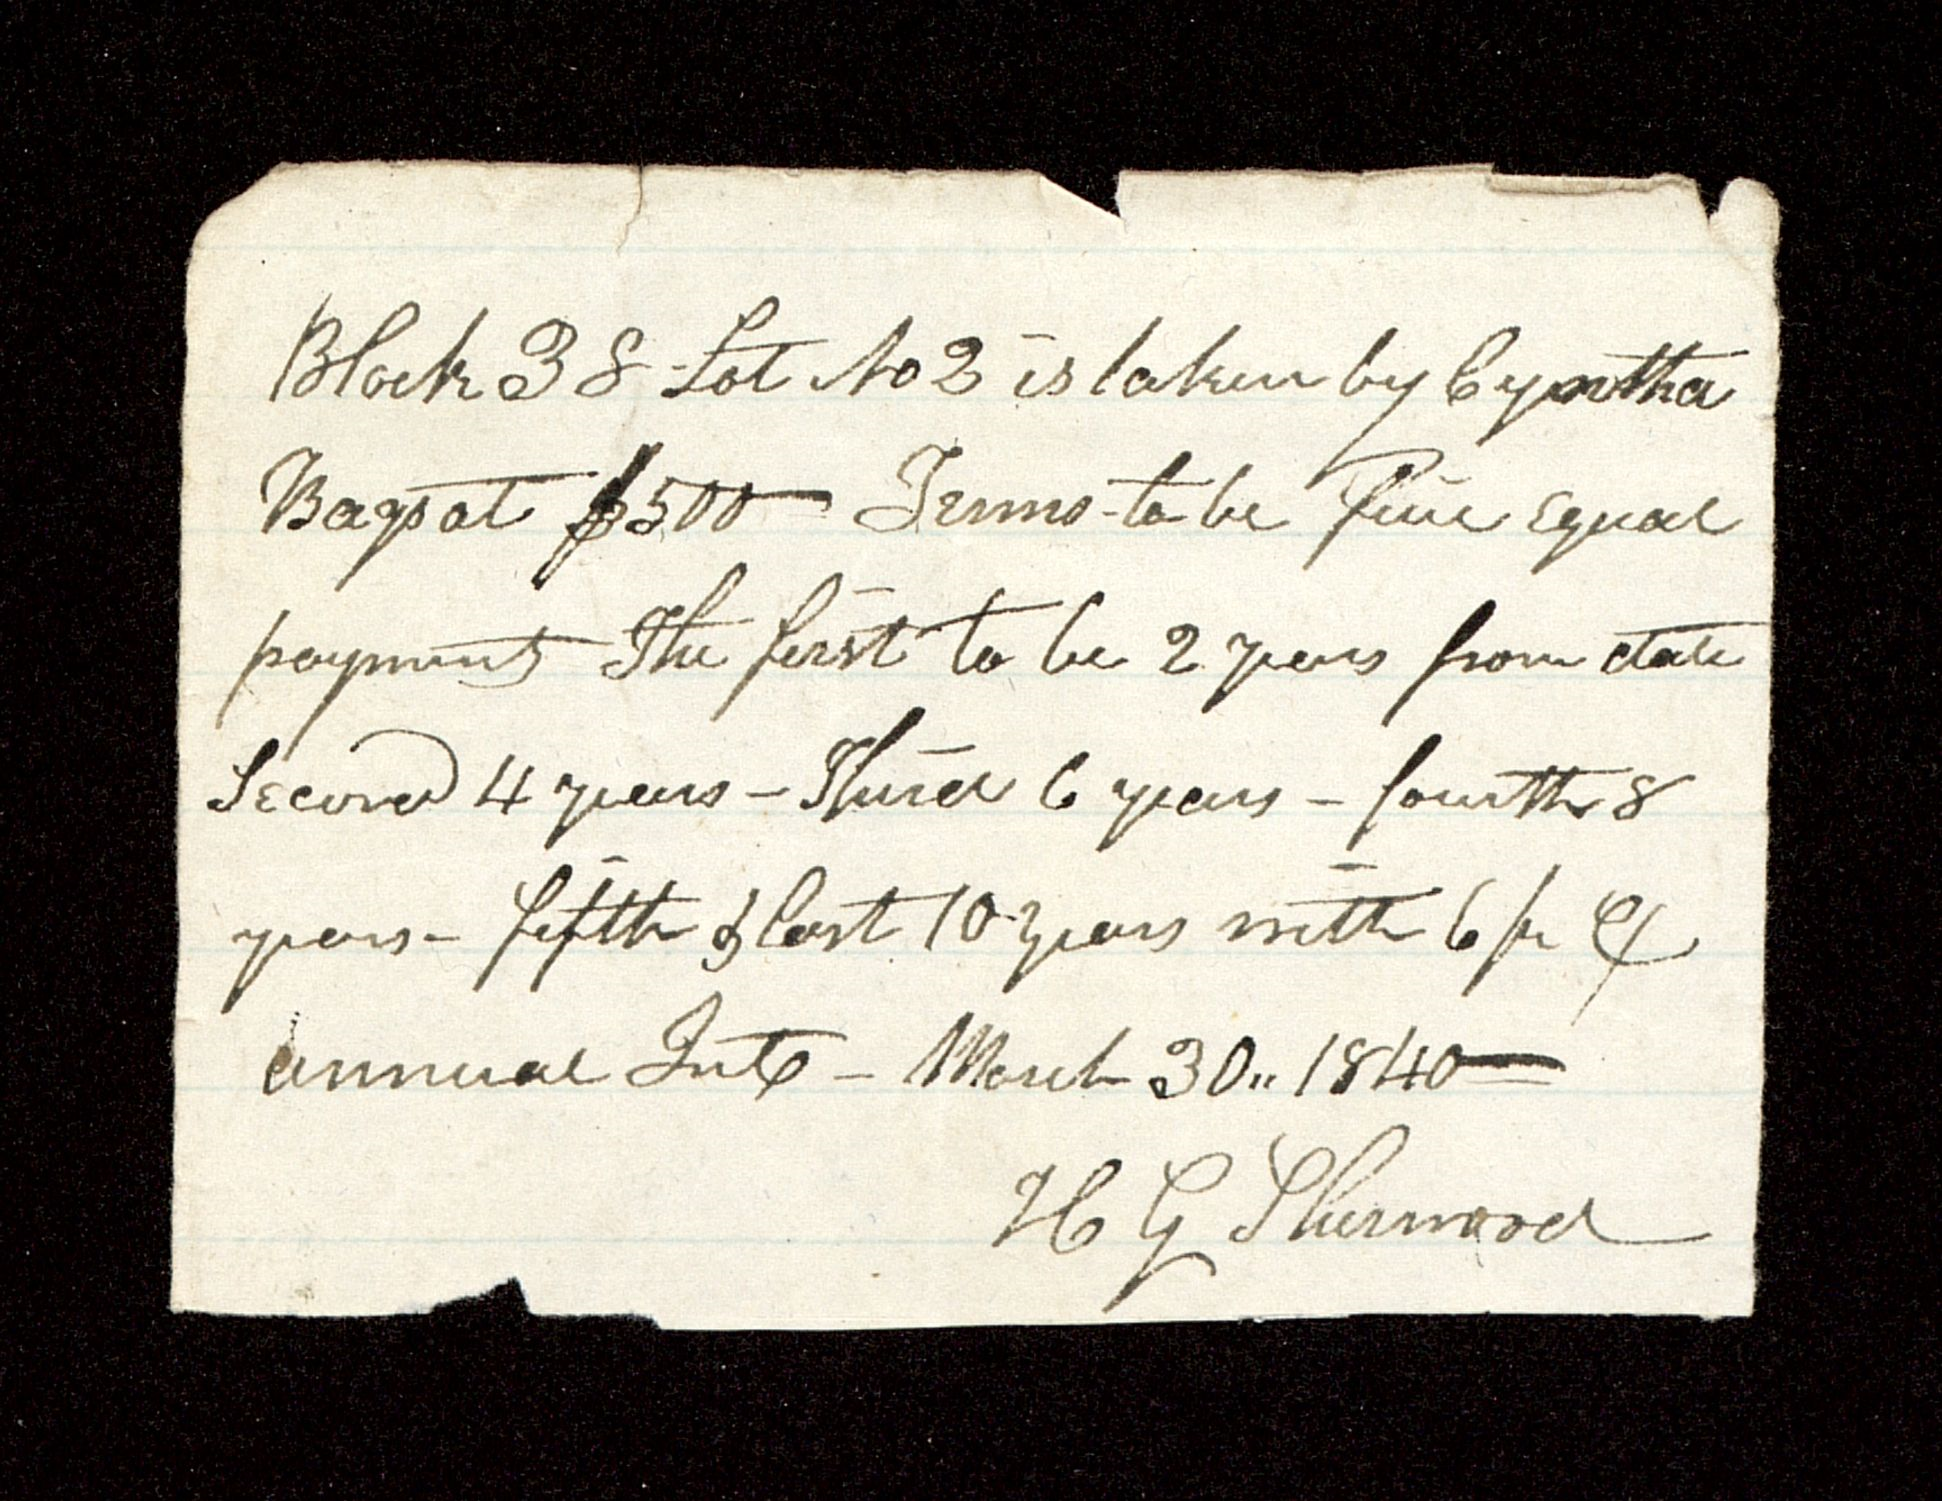 Block 38 Lot No 2 is taken by Cyntha
Bags at $500 — Terms to be five equal
payments The first to be 2 years from date
Second 4 years – Third 6 years – fourth 8
years – fifth & last 10 years with 6 pr Ct
annual Int – March 30,, 1840 —
H G Sherwood